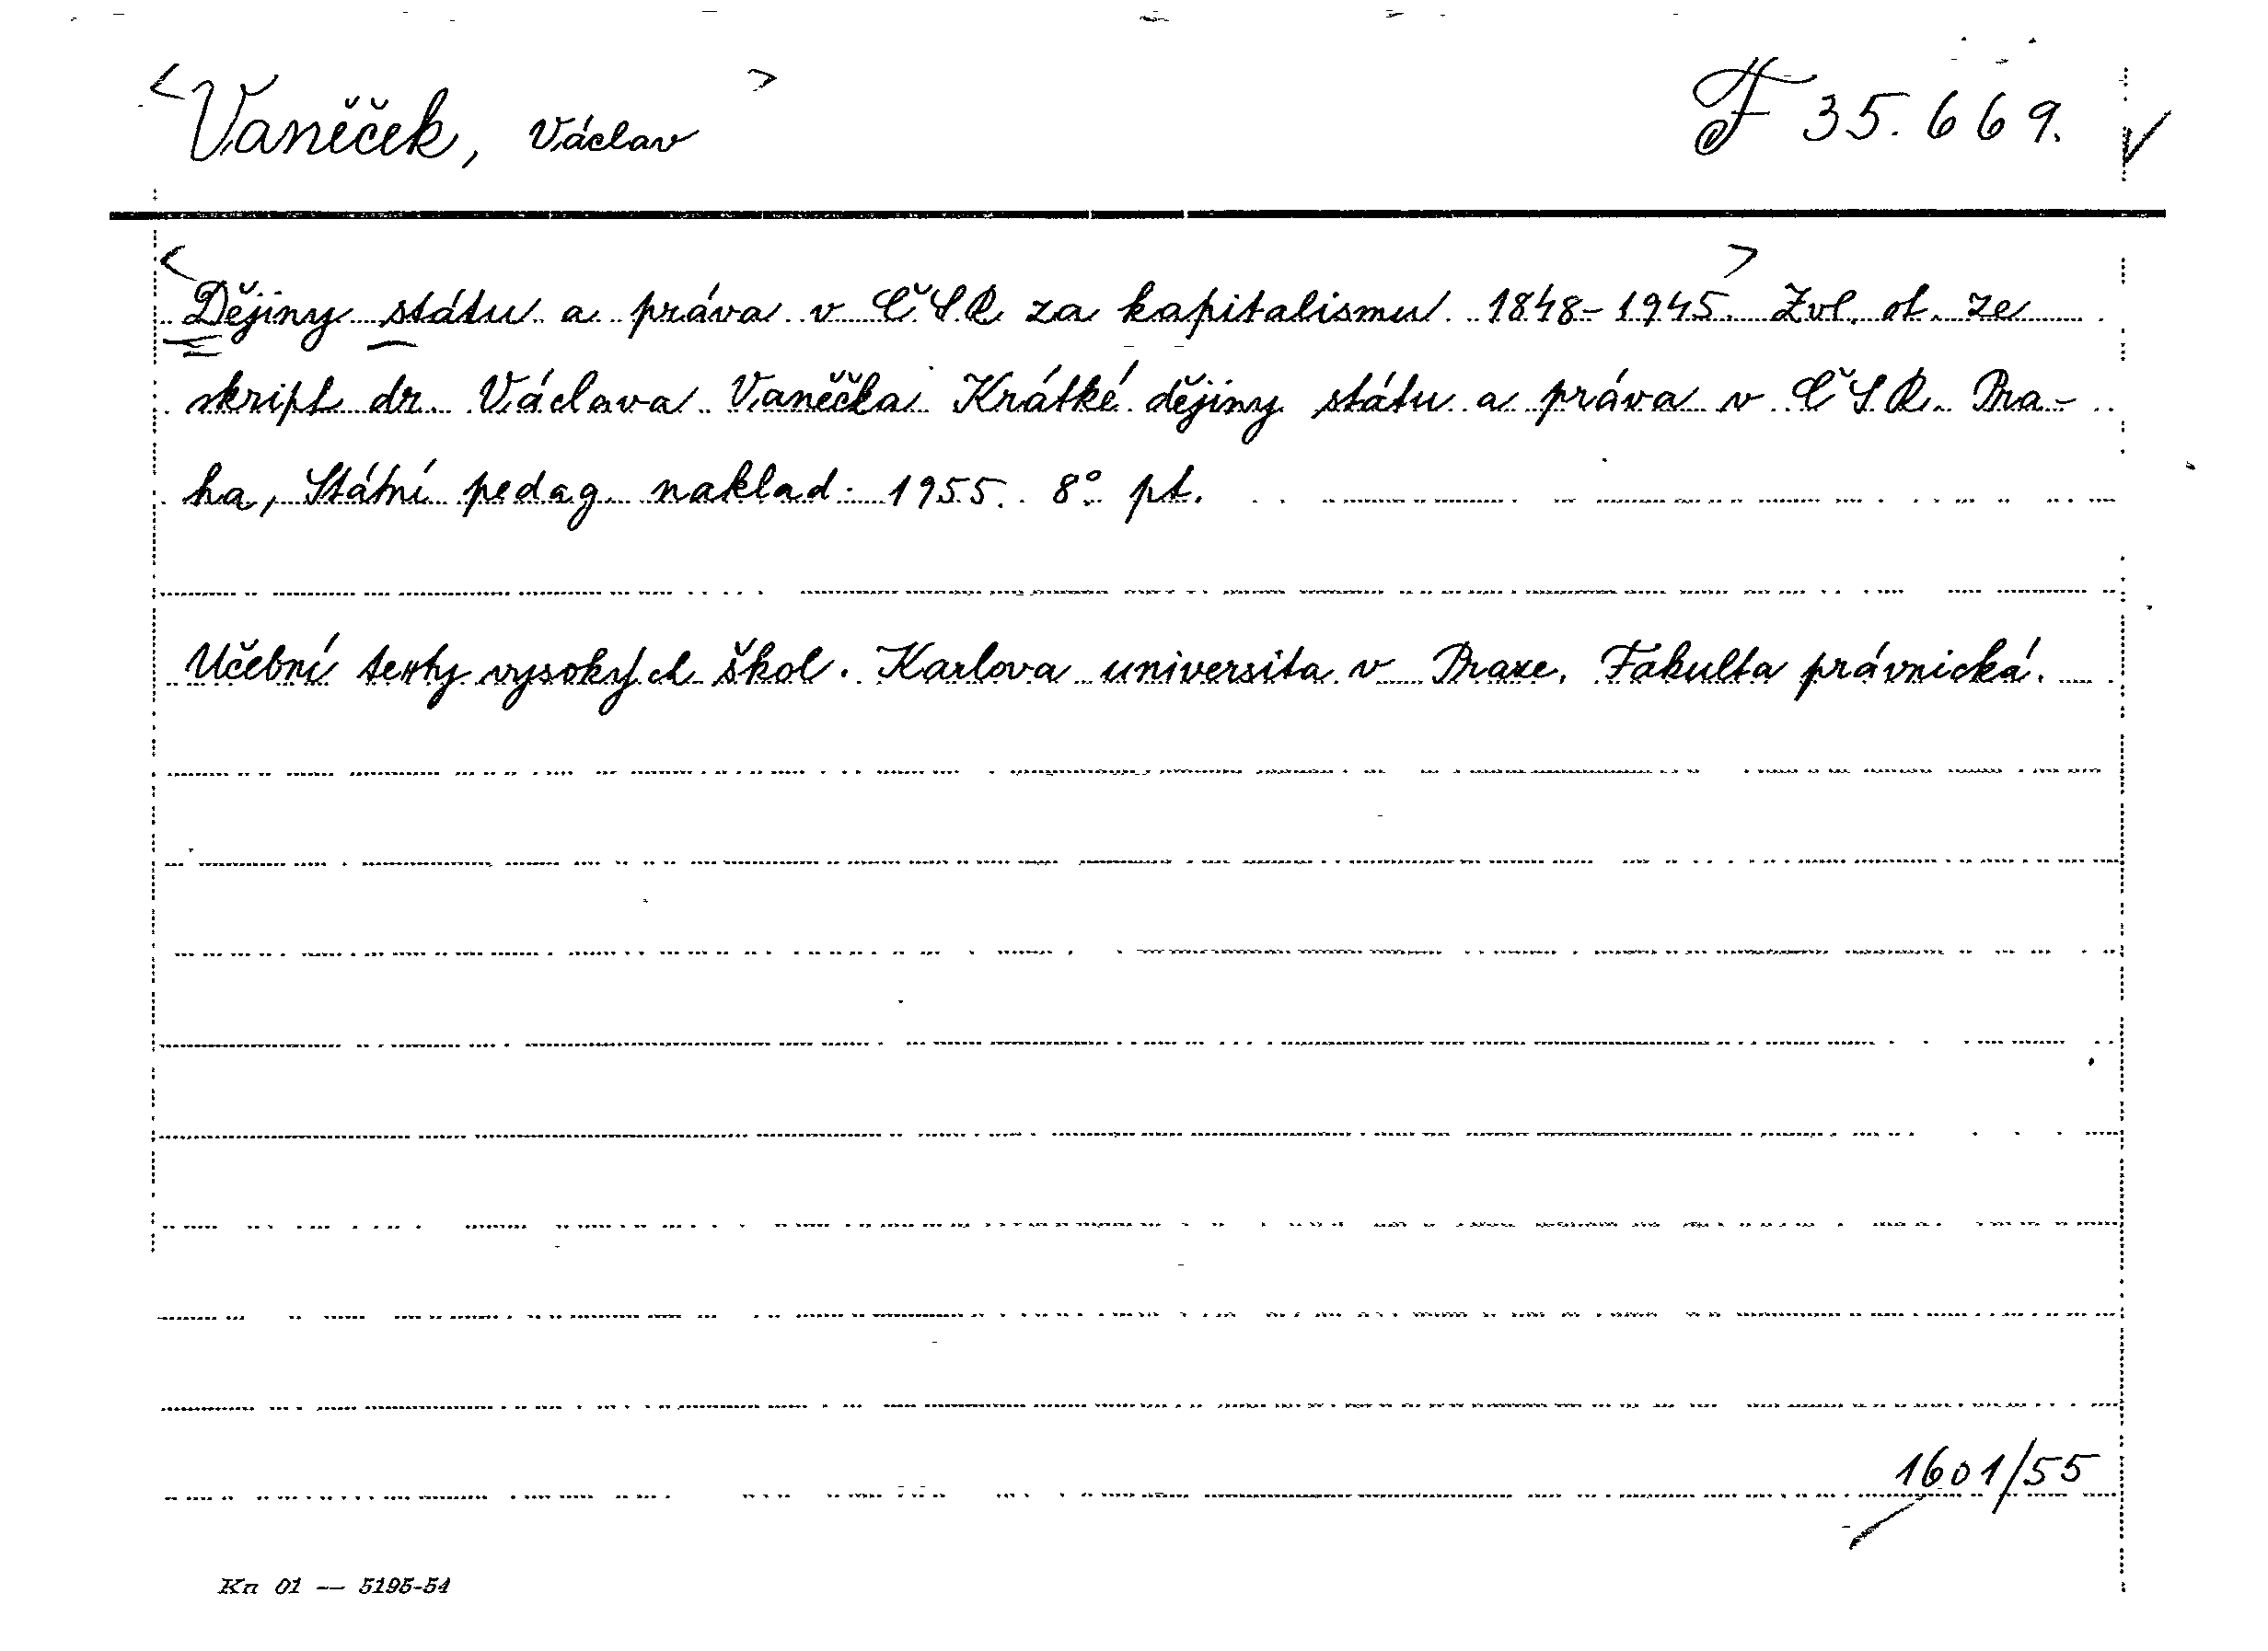 <Vaněček, Václav> F 35.669. ✓
<Dějiny státu a práva v ČSR za kapitalismu 1848-1945.> Zvl. ot. ze
skript dr. Václava Vaněčka Krátké dějiny státu a práva v ČSR. Pra-
ha, Státní pedag. naklad. 1955. 8° pt.
Učební texty vysokých škol. Karlova universita v Praze. Fakulta právnická.
1601/55
Kn 01 — 5195-54